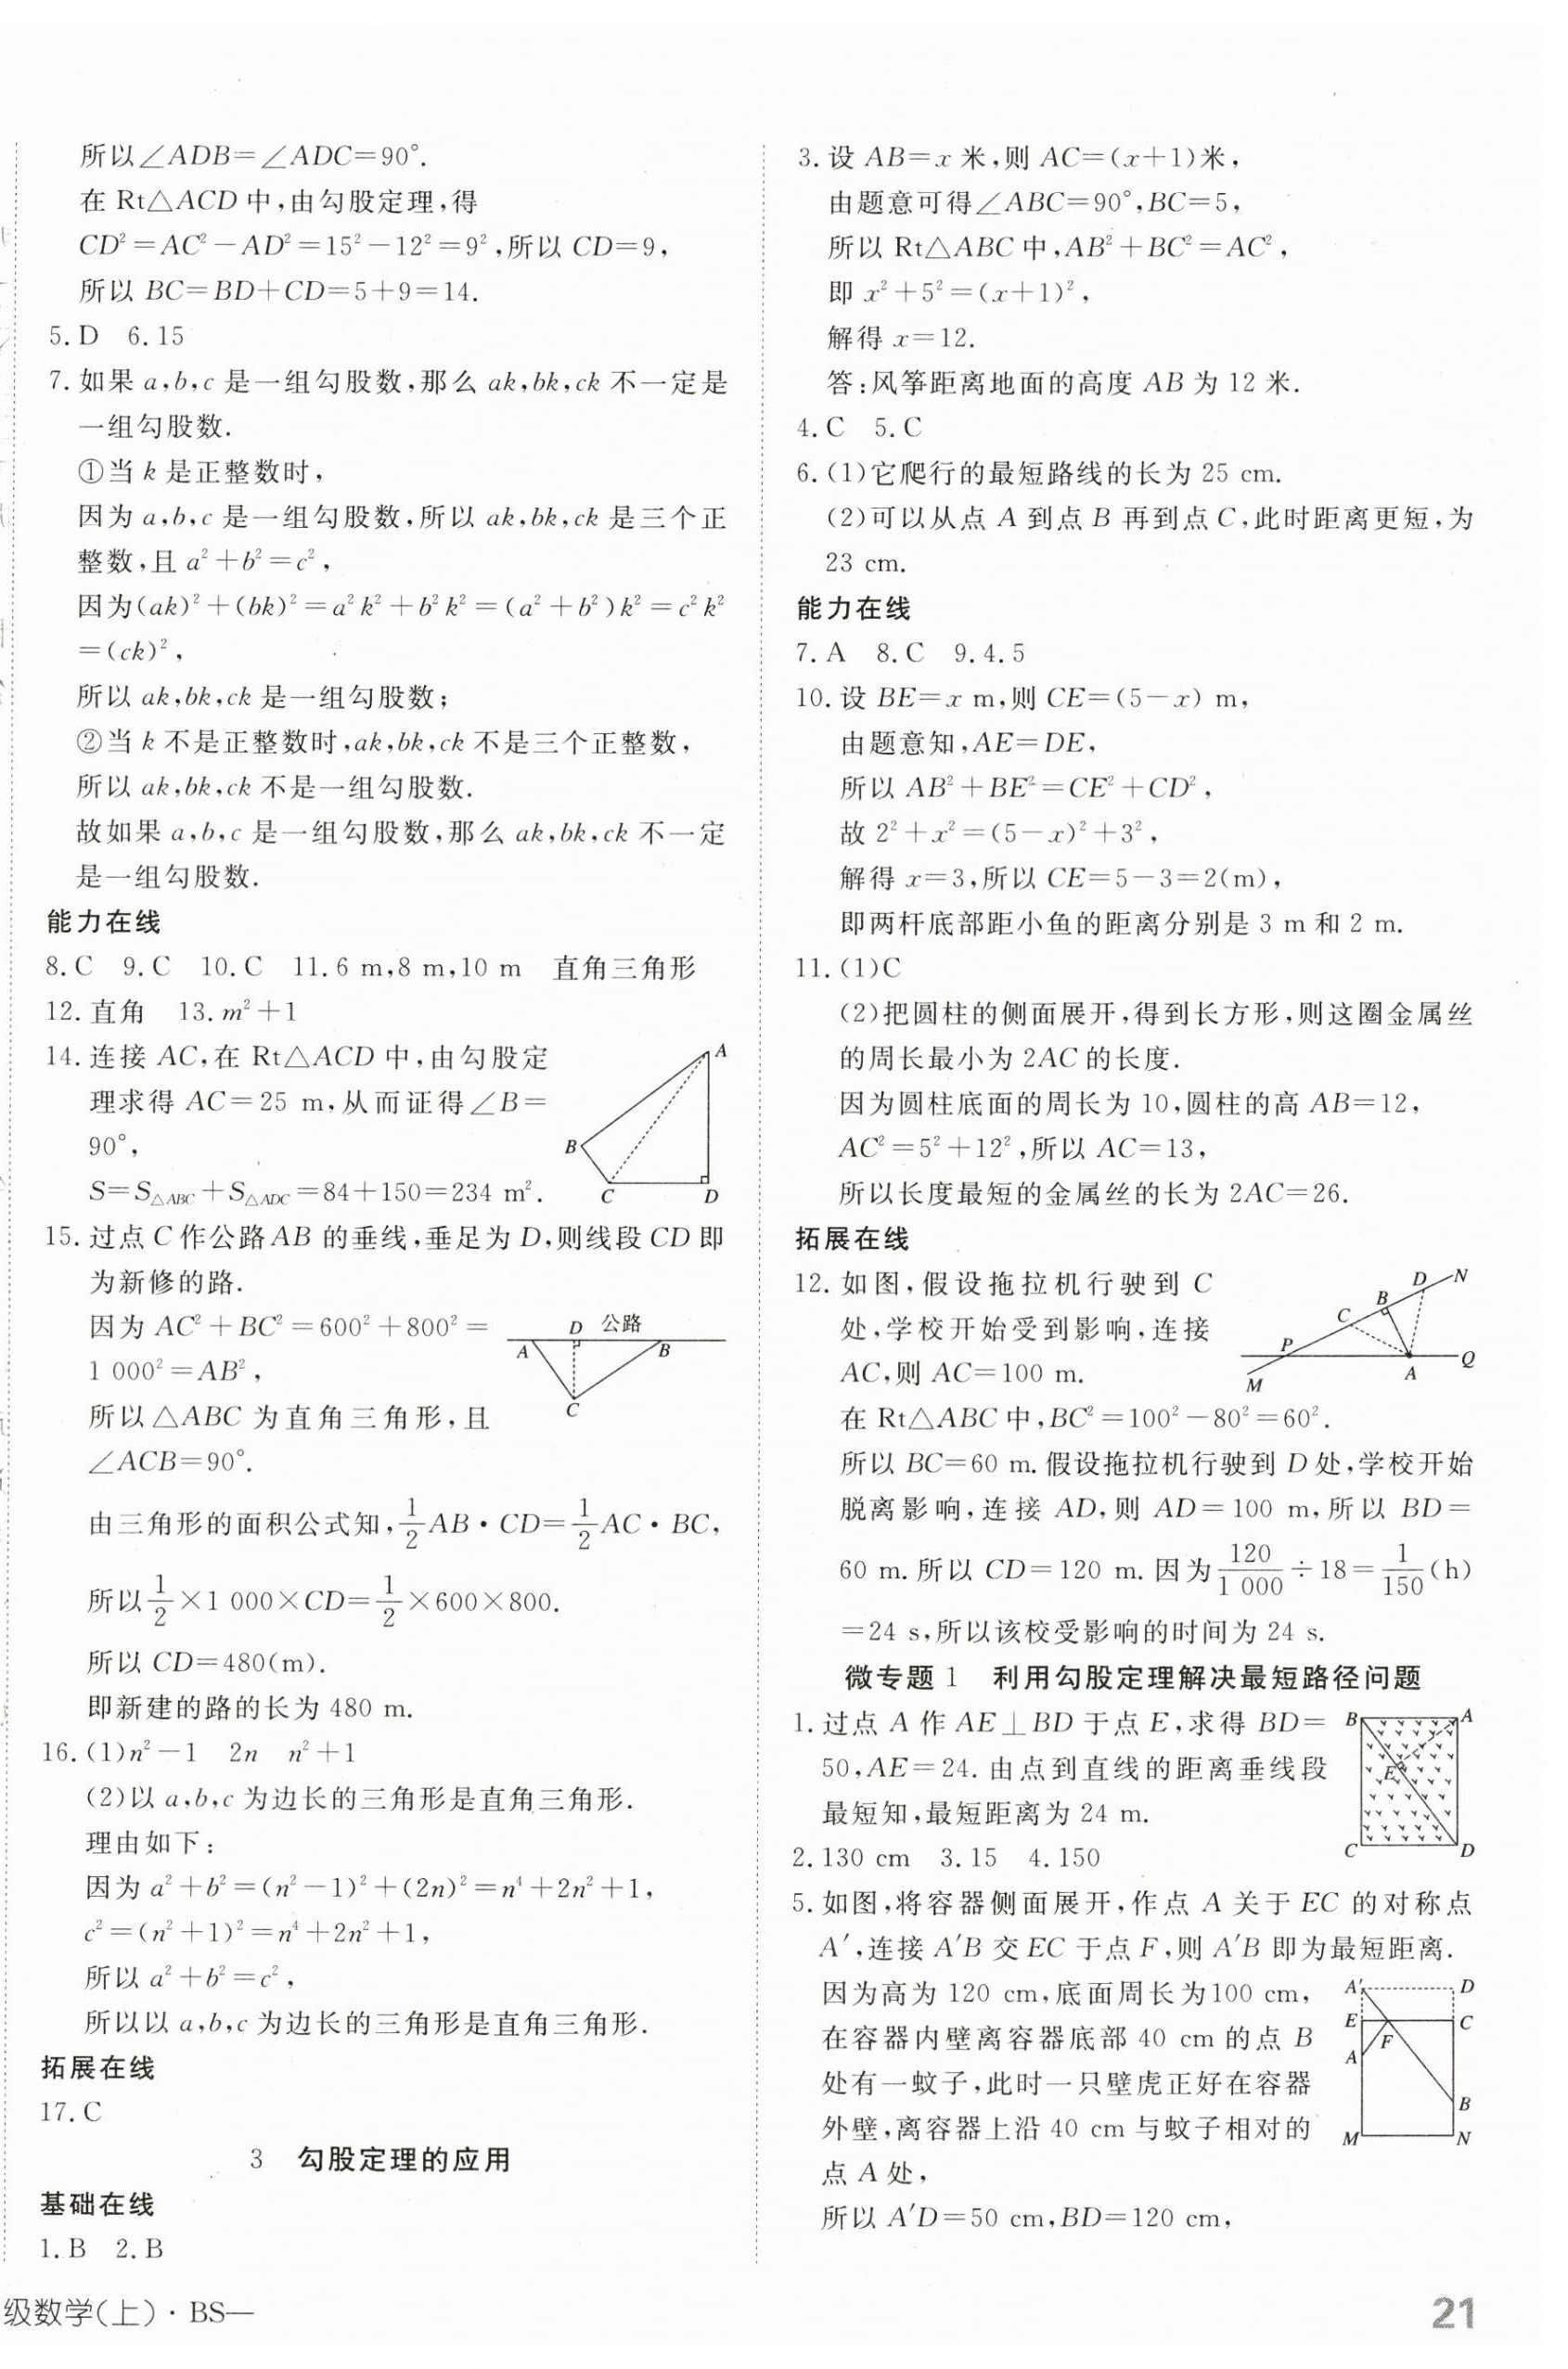 所以∠ADB=∠ADC=90°.
在 Rt△ACD 中,由勾股定理,得
CD²=AC²-AD²=15²-12²=9²,所以 CD=9,
所以 BC=BD+CD=5+9=14.
5.D 6.15
7.如果 a,b,c 是一组勾股数,那么 ak,bk,ck 不一定是
一组勾股数.
①当 k 是正整数时,
因为 a,b,c 是一组勾股数,所以 ak,bk,ck 是三个正
整数,且 a²+b²=c²,
因为(ak)²+(bk)²=a²k²+b²k²=(a²+b²)k²=c²k²
=(ck)²,
所以 ak,bk,ck 是一组勾股数;
②当 k 不是正整数时,ak,bk,ck 不是三个正整数,
所以 ak,bk,ck 不是一组勾股数.
故如果 a,b,c 是一组勾股数,那么 ak,bk,ck 不一定
是一组勾股数.
能力在线
8.C 9.C 10.C 11.6 m,8 m,10 m 直角三角形
12.直角 13.m²+1
14.连接 AC,在 Rt△ACD 中,由勾股定
理求得 AC=25 m,从而证得∠B=
90°,
S=S△ABC+S△ADC=84+150=234 m².
A
B
C
D
15.过点 C 作公路 AB 的垂线,垂足为 D,则线段 CD 即
为新修的路.
因为 AC²+BC²=600²+800²=
1 000²=AB²,
所以△ABC 为直角三角形,且
∠ACB=90°.
D 公路
A B
C
由三角形的面积公式知,1/2 AB·CD=1/2 AC·BC,
所以 1/2×1 000×CD=1/2×600×800.
所以 CD=480(m).
即新建的路的长为 480 m.
16.(1)n²-1 2n n²+1
(2)以 a,b,c 为边长的三角形是直角三角形.
理由如下:
因为 a²+b²=(n²-1)²+(2n)²=n⁴+2n²+1,
c²=(n²+1)²=n⁴+2n²+1,
所以 a²+b²=c²,
所以以 a,b,c 为边长的三角形是直角三角形.
拓展在线
17.C
3 勾股定理的应用
基础在线
1.B 2.B
3.设 AB=x 米,则 AC=(x+1)米,
由题意可得∠ABC=90°,BC=5,
所以 Rt△ABC 中,AB²+BC²=AC²,
即 x²+5²=(x+1)²,
解得 x=12.
答:风筝距离地面的高度 AB 为 12 米.
4.C 5.C
6.(1)它爬行的最短路线的长为 25 cm.
(2)可以从点 A 到点 B 再到点 C,此时距离更短,为
23 cm.
能力在线
7.A 8.C 9.4.5
10.设 BE=x m,则 CE=(5-x) m,
由题意知,AE=DE,
所以 AB²+BE²=CE²+CD²,
故 2²+x²=(5-x)²+3²,
解得 x=3,所以 CE=5-3=2(m),
即两杆底部距小鱼的距离分别是 3 m 和 2 m.
11.(1)C
(2)把圆柱的侧面展开,得到长方形,则这圈金属丝
的周长最小为 2AC 的长度.
因为圆柱底面的周长为 10,圆柱的高 AB=12,
AC²=5²+12²,所以 AC=13,
所以长度最短的金属丝的长为 2AC=26.
拓展在线
12.如图,假设拖拉机行驶到 C
处,学校开始受到影响,连接
AC,则 AC=100 m.
D N
B
C
P
Q
M
A
在 Rt△ABC 中,BC²=100²-80²=60².
所以 BC=60 m.假设拖拉机行驶到 D 处,学校开始
脱离影响,连接 AD,则 AD=100 m,所以 BD=
60 m.所以 CD=120 m.因为 120/1 000÷18=1/150(h)
=24 s,所以该校受影响的时间为 24 s.
微专题 1 利用勾股定理解决最短路径问题
1.过点 A 作 AE⊥BD 于点 E,求得 BD=
50,AE=24.由点到直线的距离垂线段
最短知,最短距离为 24 m.
B A
E
C D
2.130 cm 3.15 4.150
5.如图,将容器侧面展开,作点 A 关于 EC 的对称点
A′,连接 A′B 交 EC 于点 F,则 A′B 即为最短距离.
因为高为 120 cm,底面周长为100 cm,
在容器内壁离容器底部 40 cm 的点 B
处有一蚊子,此时一只壁虎正好在容器
外壁,离容器上沿 40 cm 与蚊子相对的
点 A 处,
A′ D
E C
F
A
B
M N
所以 A′D=50 cm,BD=120 cm,
级数学(上)·BS—
21